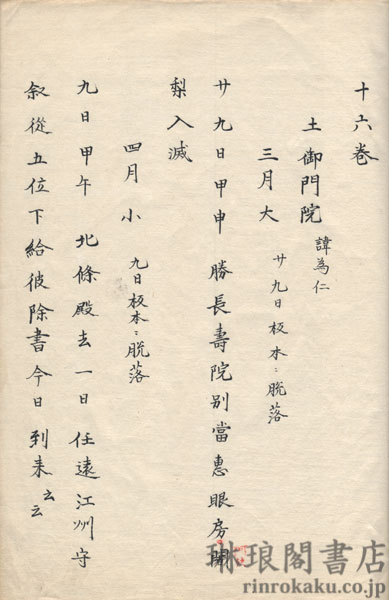 十六巻
土御門院 諱為仁
三月大 廿九日板本ニ脱落
廿九日甲申勝長壽院別當恵眼房
梨入滅
四月小 九日板本ニ脱落
九日甲午北條殿去一日任遠江州守
叙從五位下給彼除書今日到来云云
琳琅閣書店
rinrokaku.co.jp